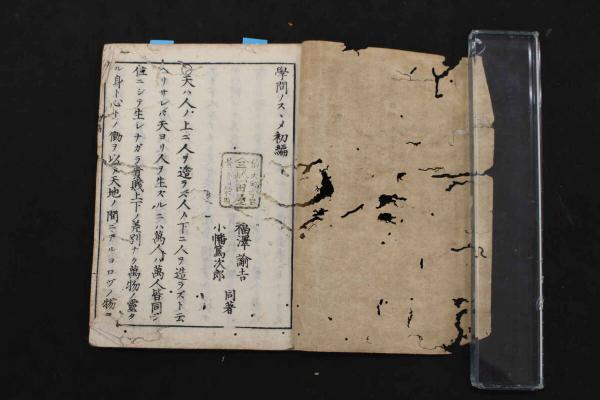 學問ノスヽメ初編
福澤諭吉
小幡篤次郎
同著
天ハ人ノ上ニ人ヲ造ラズ人ノ下ニ人ヲ造ラズト云
ヘリサレバ天ヨリ人ヲ生ズルニハ萬人ハ萬人皆同ジ
位ニシテ生レナガラ貴賤上下ノ差別ナク萬物ノ靈タ
ル身ト心トノ働ヲ以テ天地ノ間ニアルヨロヅノ物ヲ